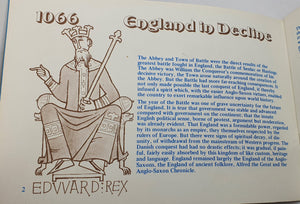 1066
England in Decline
The Abbey and Town of Battle were the direct results of the
greatest battle fought in England, the Battle of Senlac or Hastings.
The Abbey was William the Conqueror's commemoration of his
decisive victory, the Town arose naturally around the erection of
the Abbey. But the Battle had more far-reaching consequences, it
not only made possible the last conquest of England, it
infused a spirit which, with the native Anglo-Saxon virtues, enabled
the country to exert remarkable influence upon world history.
The year of the Battle was one of grave uncertainty for the future
of England. It is true that government was sedate and advanced
compared with government on the continent; that the innate
English political sense, horror of pretence, argument but moderation
was already evident. That England was a formidable power,
by its monarchs as an empire, they themselves respected by the
rulers of Europe. But there were signs of spiritual decay, of the
unity, of withdrawal from the mainstream of Western progress. The
Danish conquest had had no drastic effects; it was gradual, if
ful, fairly easily absorbed by this kingdom of like custom,
and language. England remained largely the England of the
Saxons, the England of ancient folklore, Alfred the Great and the
Anglo-Saxon Chronicle.
2
EDWARD:REX